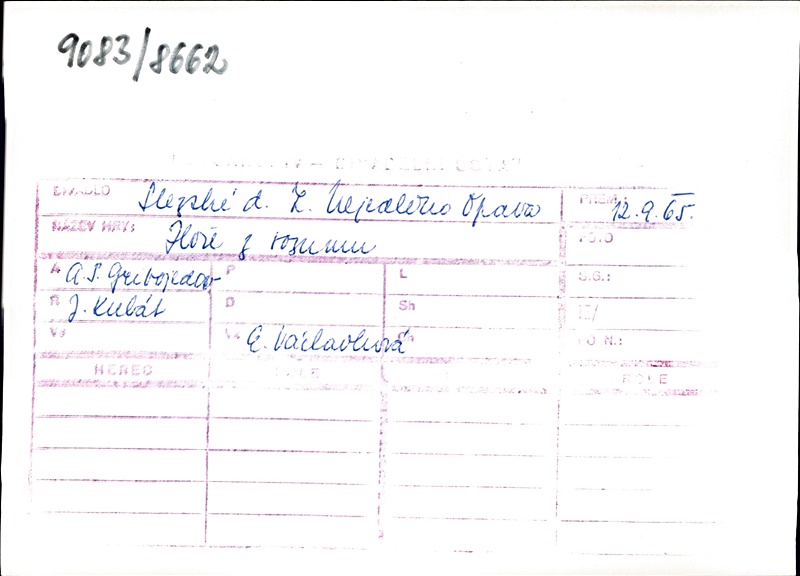 9083/8662
DIVADLO Slezské d. Z. Nejedlého Opava PREM.: 12.9.65.
NÁZEV HRY: Hoře z rozumu FOTO
A A.S. Gribojedov P L S.G.:
R J. Kubát D Sh
Vs E. Václavková FO N.:
HEREC ROLE ROLE